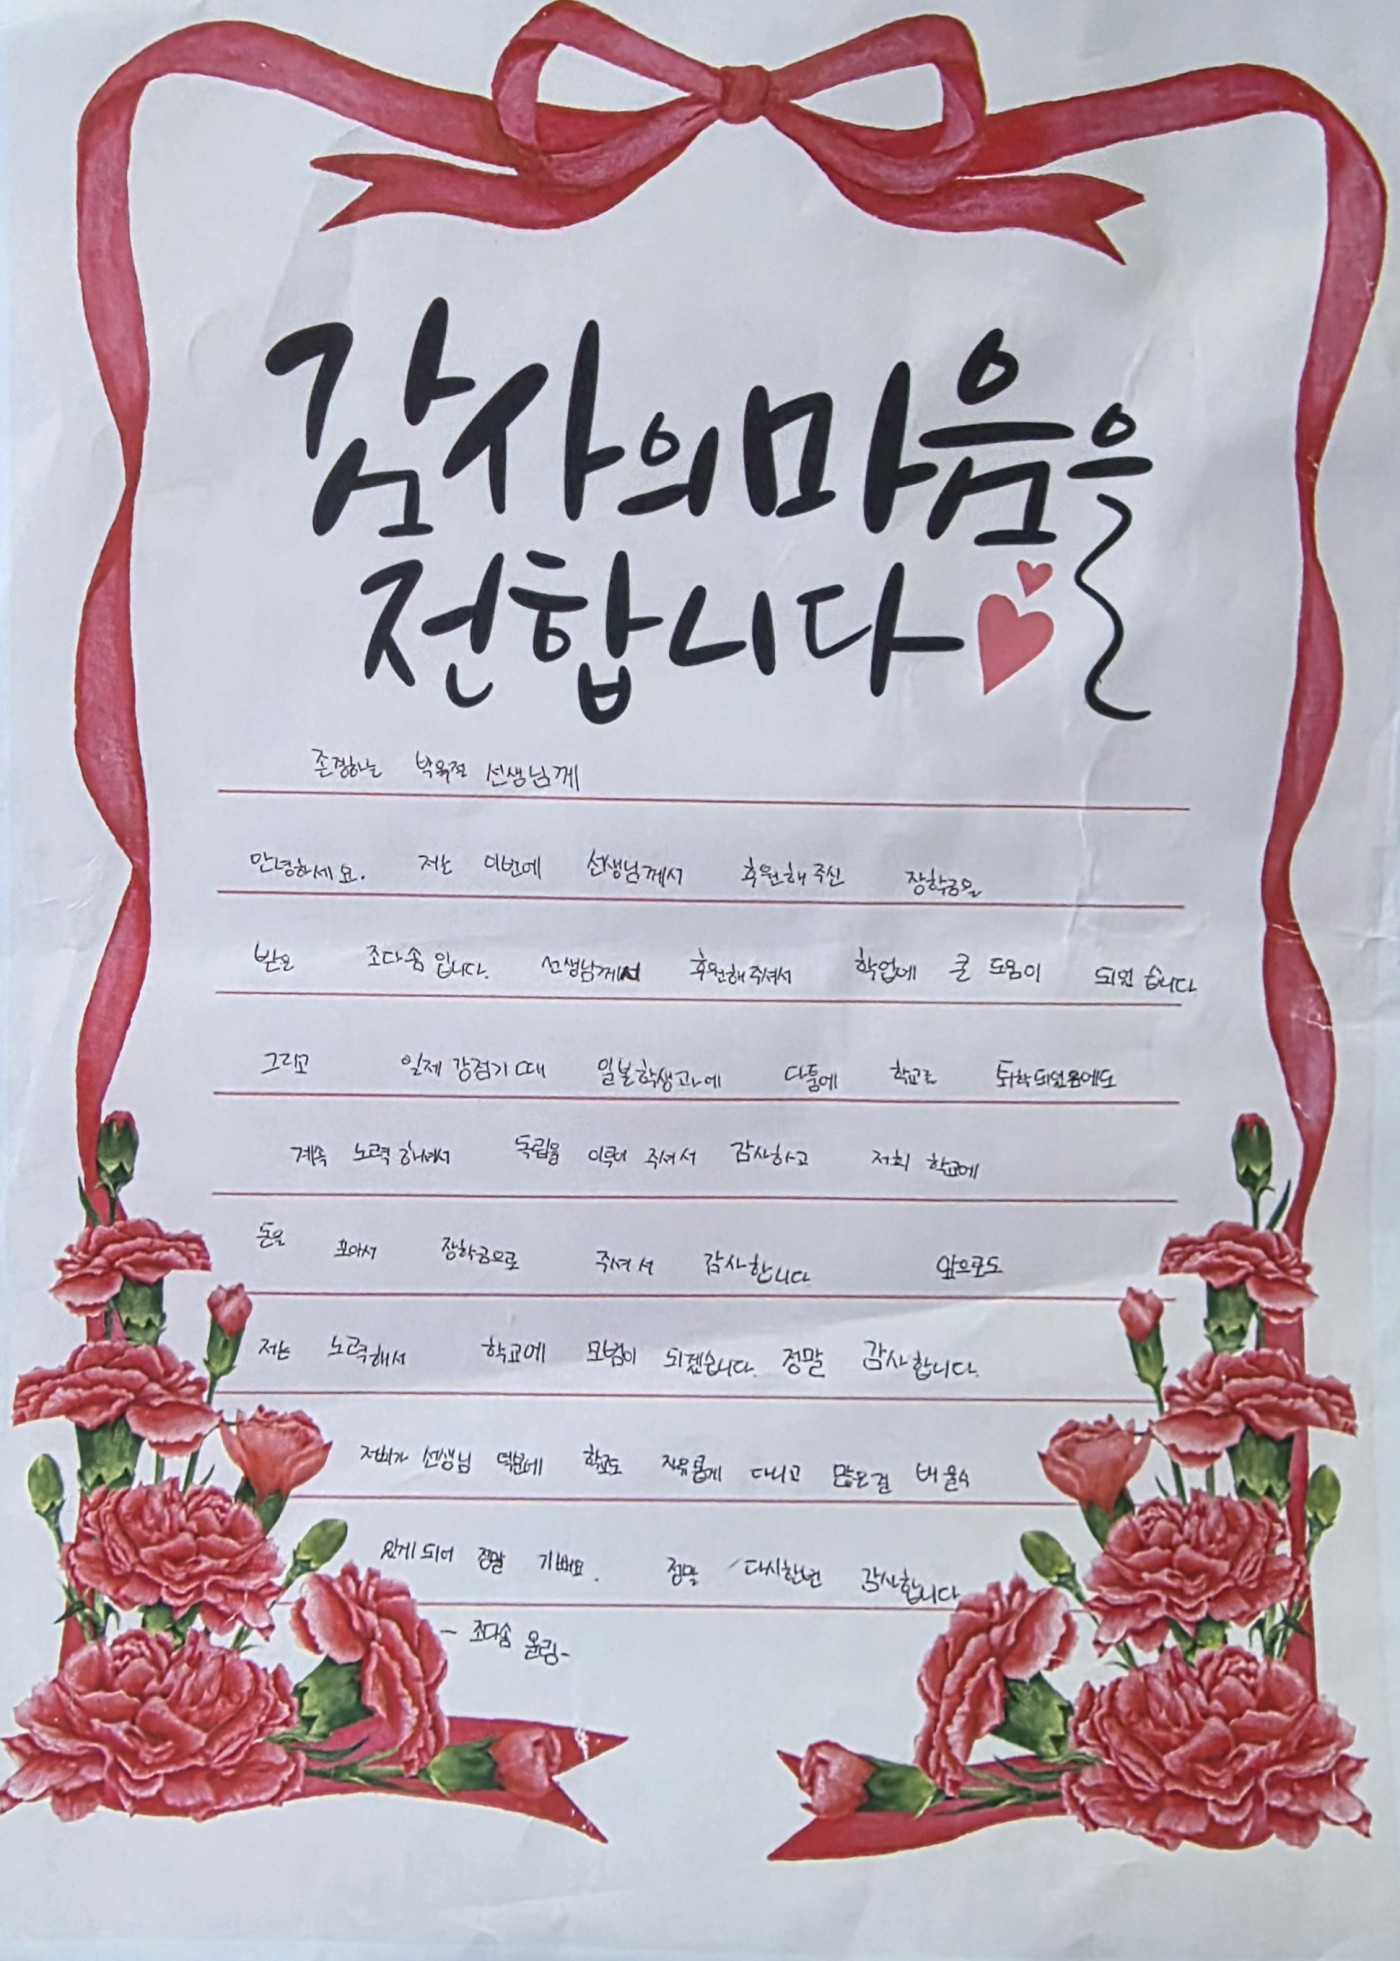 감사의 마음을
전합니다
존경하는 박육전 선생님께
안녕하세요. 저는 이번에 선생님께서 후원해 주신 장학금을
받은 조다솜 입니다. 선생님께서 후원해 주셔서 학업에 큰 도움이 되었 습니다
그리고 일제 강점기 때 일본학생과에 다툼에 학교를 퇴학되었음에도
계속 노력 하셔서 독립을 이루어 주셔서 감사하고 저희 학교에
돈을 모아서 장학금으로 주셔서 감사합니다 앞으로도
저는 노력해서 학교에 모범이 되겠습니다. 정말 감사합니다.
저희가 선생님 덕분에 학교도 자유롭게 다니고 많은걸 배울수
있게 되어 정말 기뻐요. 정말 다시한번 감사합니다
- 조다솜 올림-